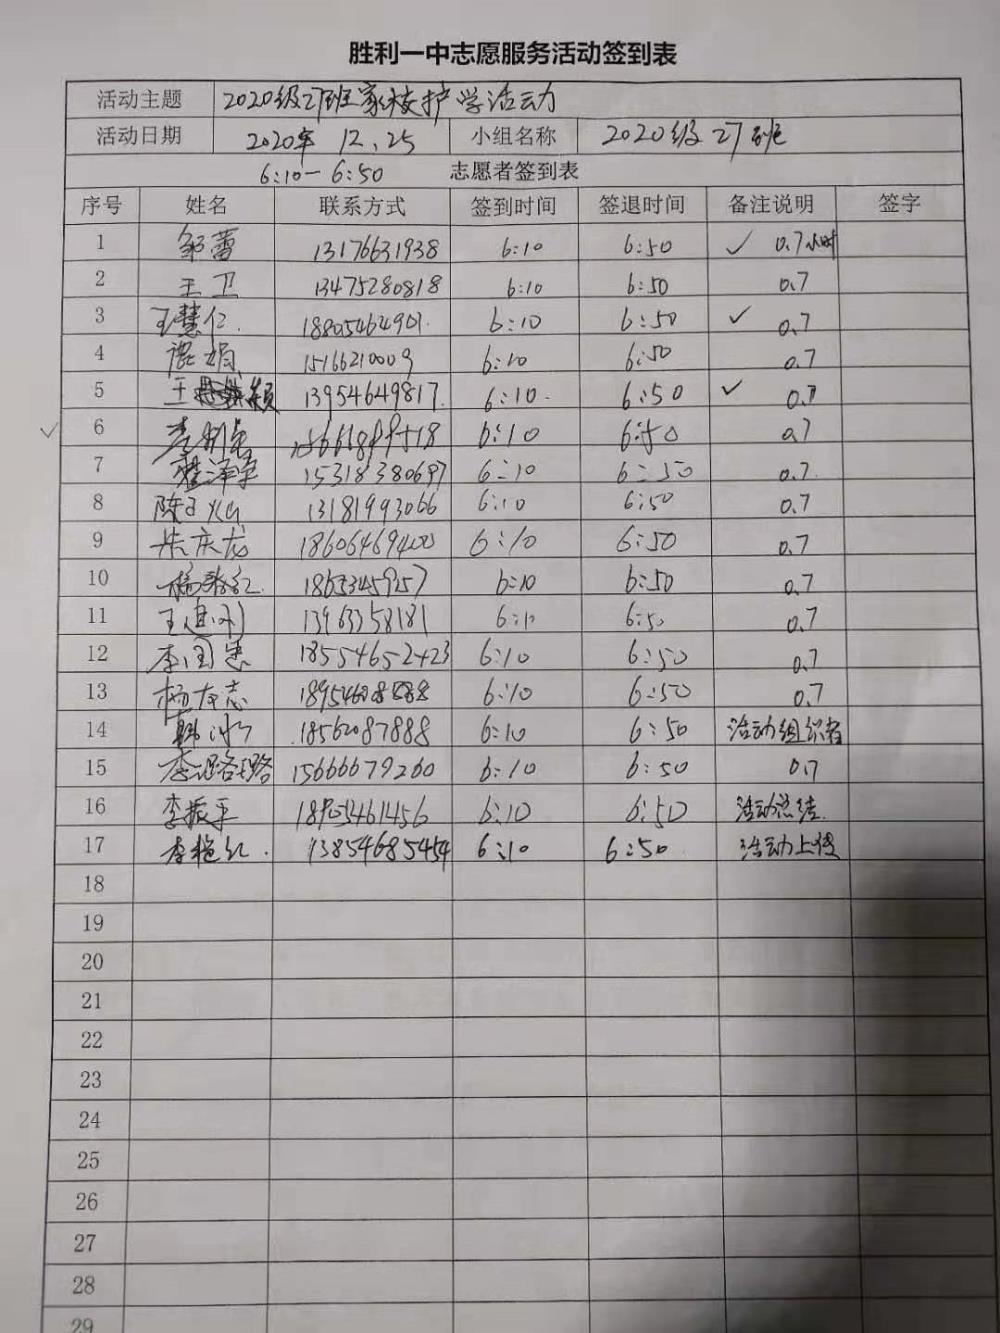 胜利一中志愿服务活动签到表
活动主题 2020级27班家校护学活动
活动日期 2020年 12.25 小组名称 2020级27班
6:10-6:50 志愿者签到表
序号 姓名 联系方式 签到时间 签退时间 备注说明 签字
1 邹蕾 13176631938 6:10 6:50 ✓ 0.7小时
2 王卫 13475280818 6:10 6:50 0.7
3 王慧仁. 18805464901. 6:10 6:50 ✓ 0.7
4 娟 15166210009 6:10 6:50 0.7
5 王 颖 13954649817. 6:10. 6:50 ✓ 0.7
✓ 6 李 6:10 6:50 0.7
7 泽军 15318380697 6:10 6:50 0.7.
8 陈 13181993066 6:10 6:50 0.7
9 庆龙 18606469400 6:10 6:50 0.7
10 杨 红. 6:10 6:50 0.7
11 王建刚 13963358181 6:10 6:50 0.7
12 李国忠 18554652423 6:10 6:50 0.7
13 杨友志 6:10 6:50 0.7
14 韩冰 18562087888 6:10 6:50 活动组织者
15 李璐璐 15666679260 6:10 6:50 0.7
16 李振平 18953461456 6:10 6:50 活动总结.
17 李艳红. 13854685454 6:10 6:50 活动上传
18
19
20
21
22
23
24
25
26
27
28
29